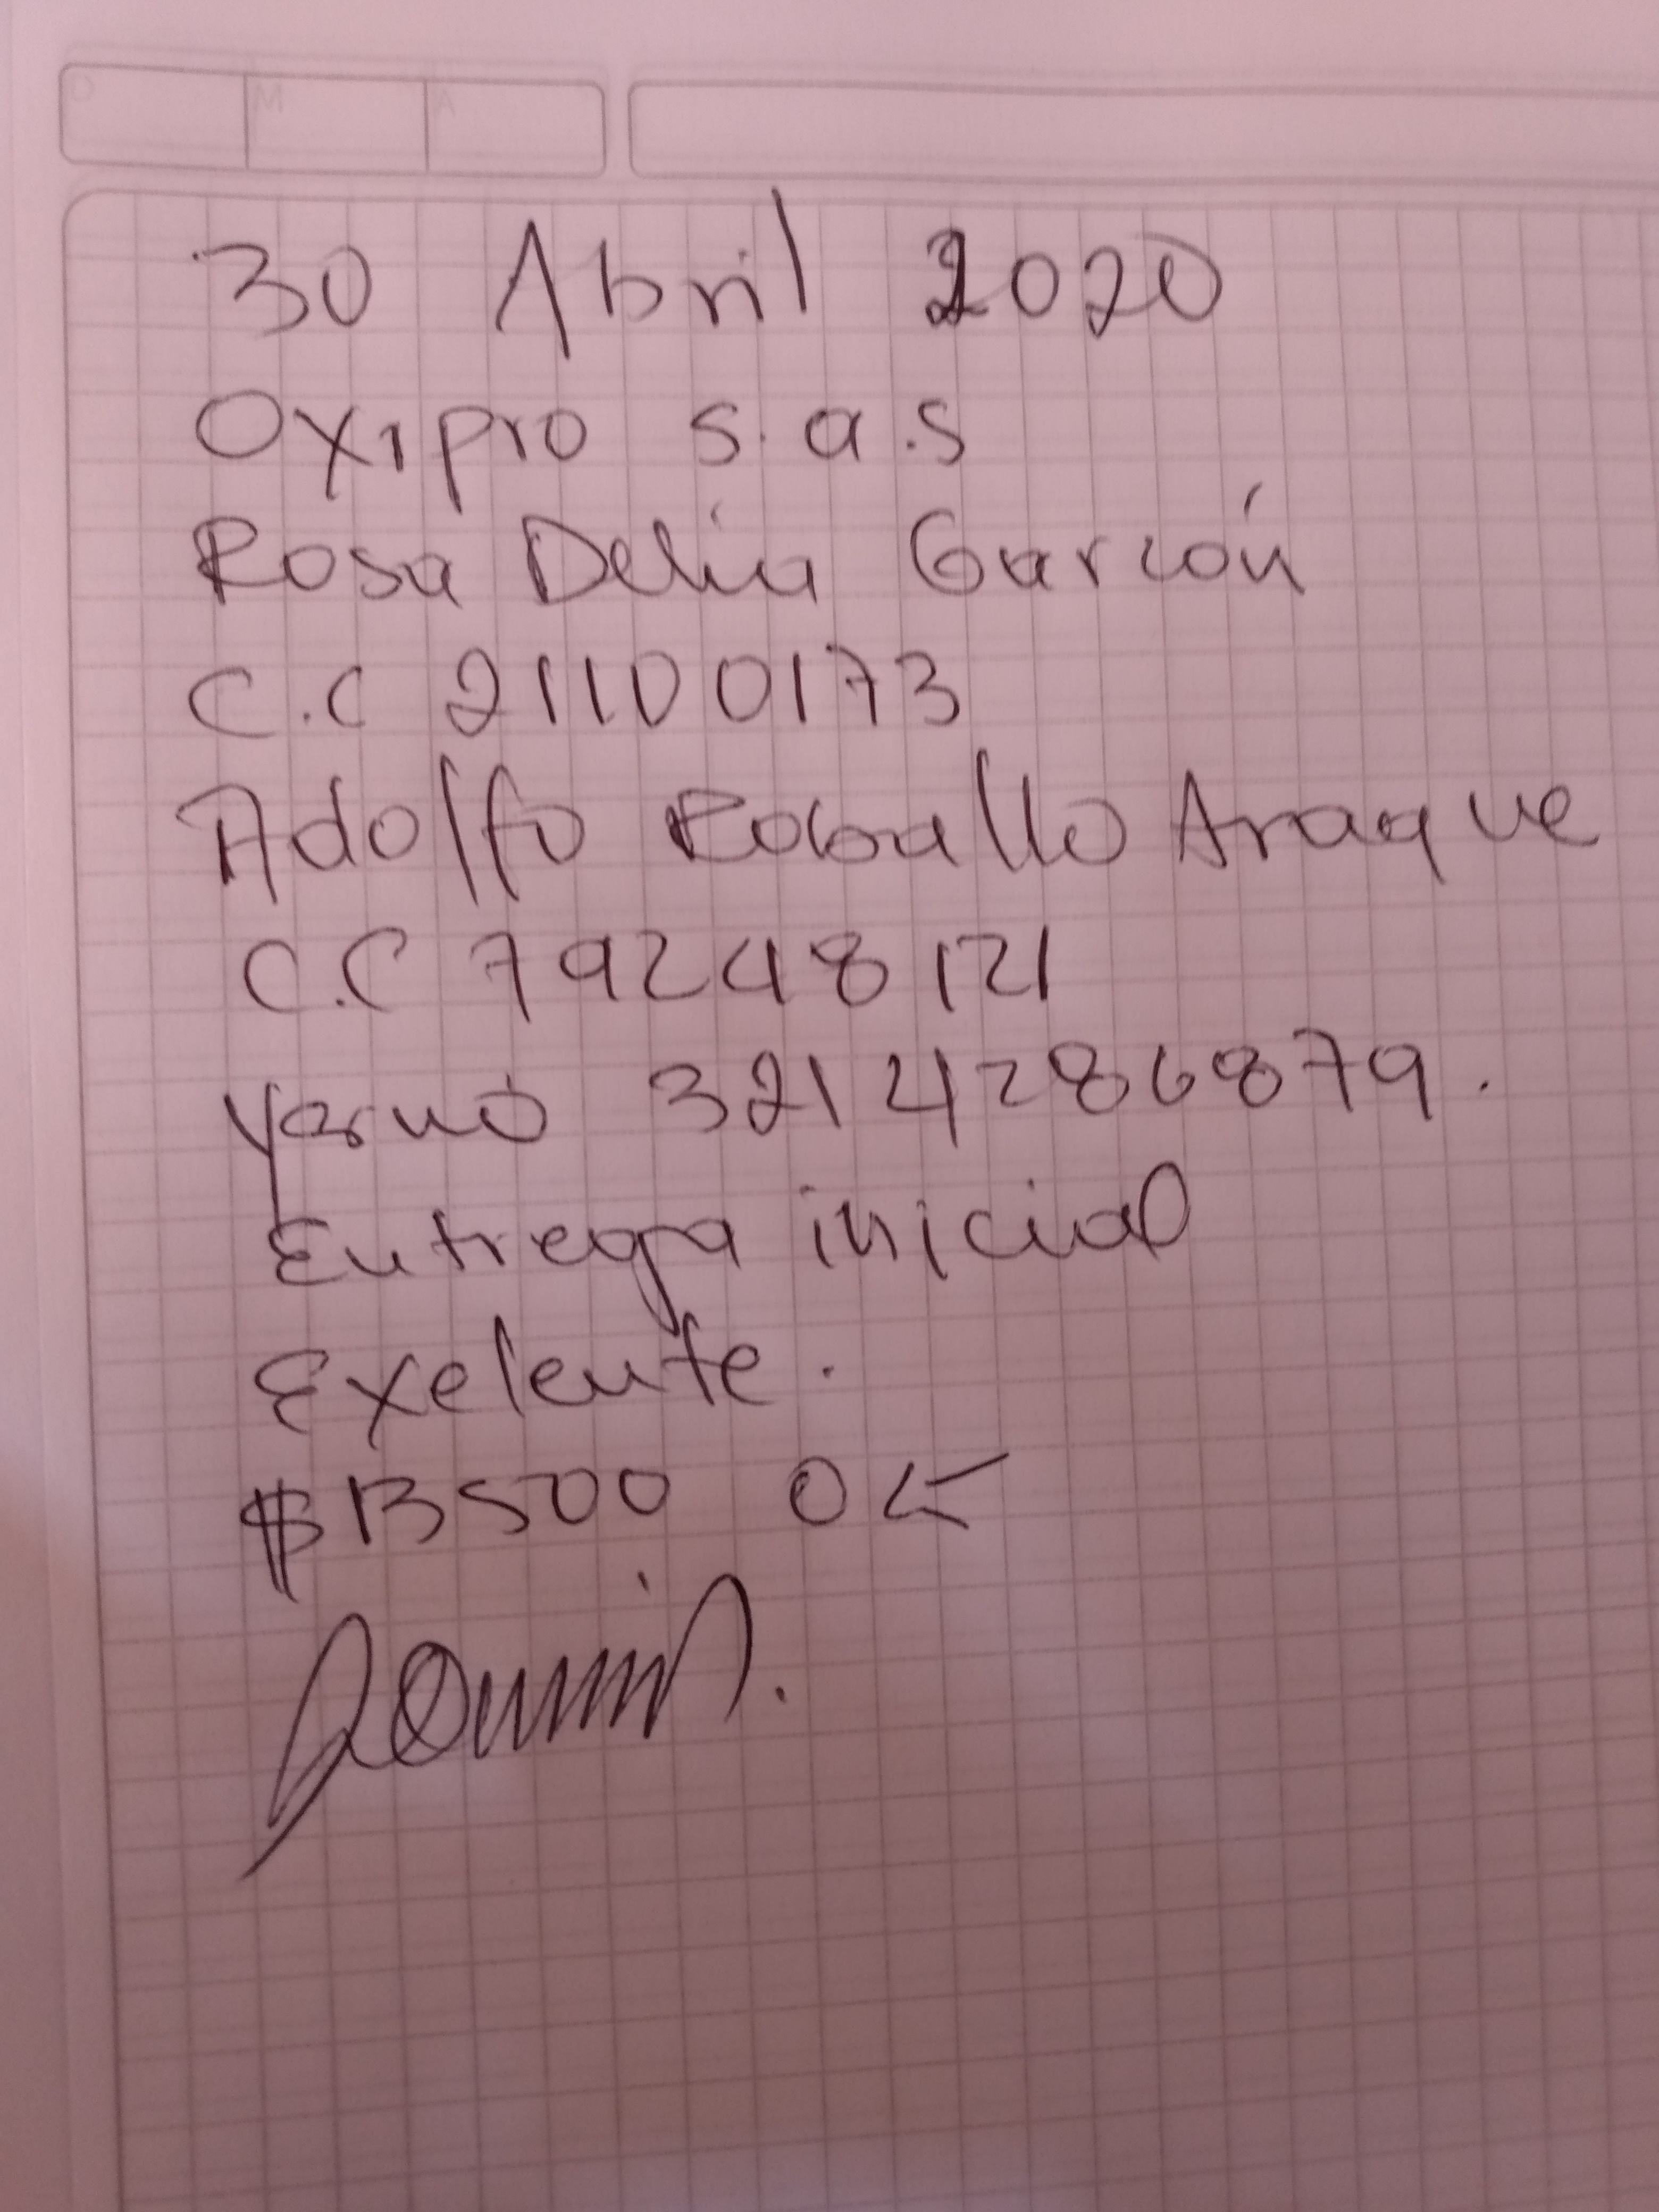 D M A
30 Abril 2020
Oxipro s.a.s
Rosa Delia Garzón
C.C 21100173
Adolfo Roballo Araque
C.C 79248121
Yerno 3214286879.
Entrega inicial
Exelente.
$13500 OK